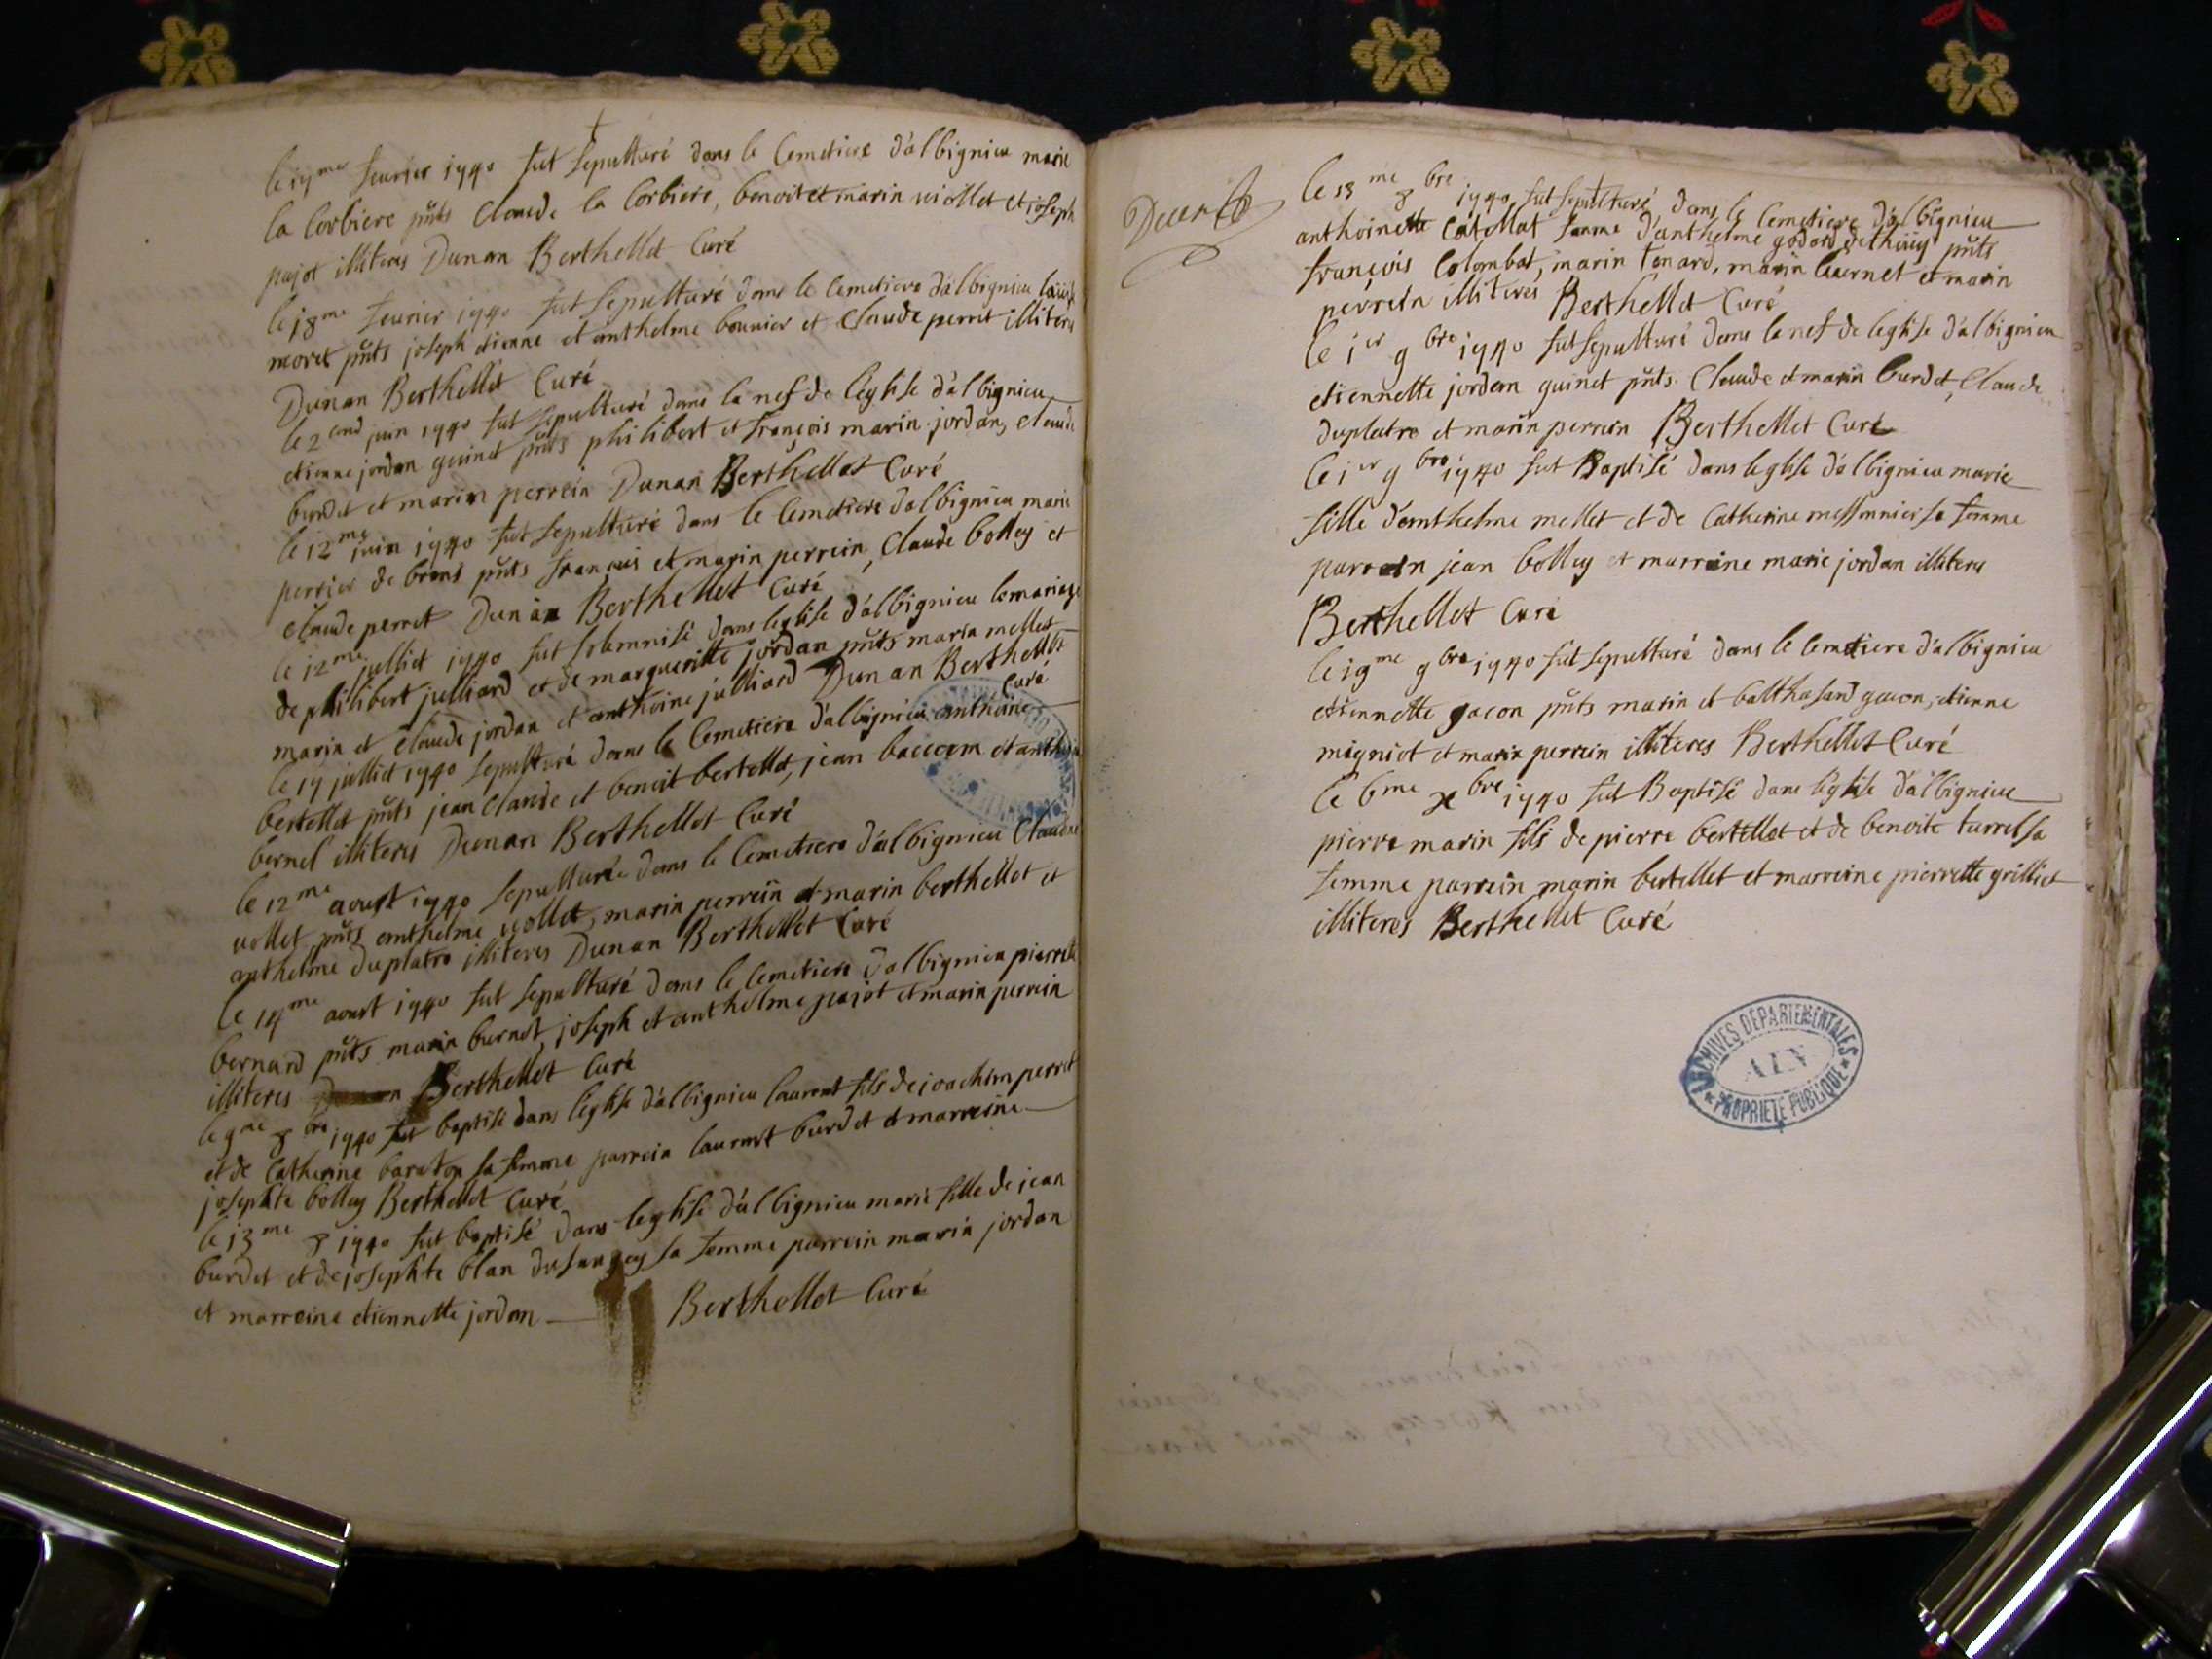 le 17me feurier 1740 fut sepulturé dans le Cemetiere d'albignieu marie
la Corbiere pnts Claude la Corbiere, benoit et marin uiollet et joseph
pajot illiteres Dunan Berthellet Curé
le 18me feurier 1740 fut sepulturé dans le Cemetiere d'albignieu louise
moret pnts joseph etienne et anthelme bounier et Claude perret illiteres
Dunan Berthellet Curé
le 2cond juin 1740 fut sepulturé dans la nef de leglise d'albignieu
etienne jordan guinet pnts philibert et françois marin jordan, claude
burdet et marin perrein Dunan Berthellet Curé
le 12me juin 1740 fut sepulturé dans le Cemetiere d'albignieu marie
perrier de brens pnts françois et marin perrein, Claude bolley et
claude perret Dunan Berthellet Curé
le 12me julliet 1740 fut solemnisé dans leglise d'albignieu le mariage
de philibert julliard et de margueritte jordan pnts marin mellet
marin et Claude jordan et anthoine julliard Dunan Berthellet
Curé
le 19 julliet 1740 sepulturé dans le Cemetiere d'albignieu anthoine
bertellet pnts jean Claude et benoit bertellet, jean
bernel illiteres Dunan Berthellet Curé
le 12me aoust 1740 sepulturé dans le Cemetiere d'albignieu Claudine
uollet pnts anthelme uollet, marin perrein et marin berthellet et
anthelme duplatre illiteres Dunan Berthellet Curé
le 14me aoust 1740 fut sepulturé dans le Cemetiere d'albignieu pierrette
bernard pnts marin burnet, joseph et anthelme pajot et marin perrein
illiteres Dunan Berthellet Curé
le 9me 8bre 1740 fut baptisé dans leglise d'albignieu laurent fils de joachim perret
et de Catherine baraton sa femme parrein laurent burdet et marreine
josephte bolley Berthellet Curé
le 13me 8 1740 fut baptisé dans leglise d'albignieu marie fille de jean
burdet et de josephte blan dufangey sa femme parrein marin jordan
et marreine etiennette jordan Berthellet Curé
le 13me 8bre 1740 fut sepulturé dans le Cemetiere d'albignieu
anthoinette Catellat femme d'anthelme godard de thuey pnts
françois Colombat, marin tenard, marin et marin
perrein illiteres Berthellet Curé
le 1er 9bre 1740 fut sepulturé dans la nef de leglise d'albignieu
etiennette jordan guinet pnts. Claude et marin burdet, Claude
duplatre et marin perrein Berthellet Curé
le 1er 9bre 1740 fut Baptisé dans leglise d'albignieu marie
fille d'anthelme mellet et de Catherine messonnier sa femme
parrein jean bolley et marreine marie jordan illiteres
Berthellet Curé
le 19me 9bre 1740 fut sepulturé dans le Cemetiere d'albignieu
etiennette gacon pnts marin et balthasard gacon, etienne
migniot et marin perrein illiteres Berthellet Curé
le 6me xbre 1740 fut Baptisé dans leglise d'albignieu
pierre marin fils de pierre bertellet et de benoite turrel sa
femme parrein marin bertellet et marreine pierrette grilliet
illiteres Berthellet Curé
ARCHIVES DEPARTEMENTALES
AIN
* PROPRIETE PUBLIQUE *